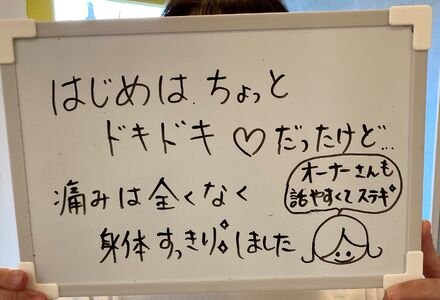 はじめは ちょっと
ドキドキ♡だったけど...
オーナーさんも
話やすくてステキ
痛みは全くなく
身体すっきりしました